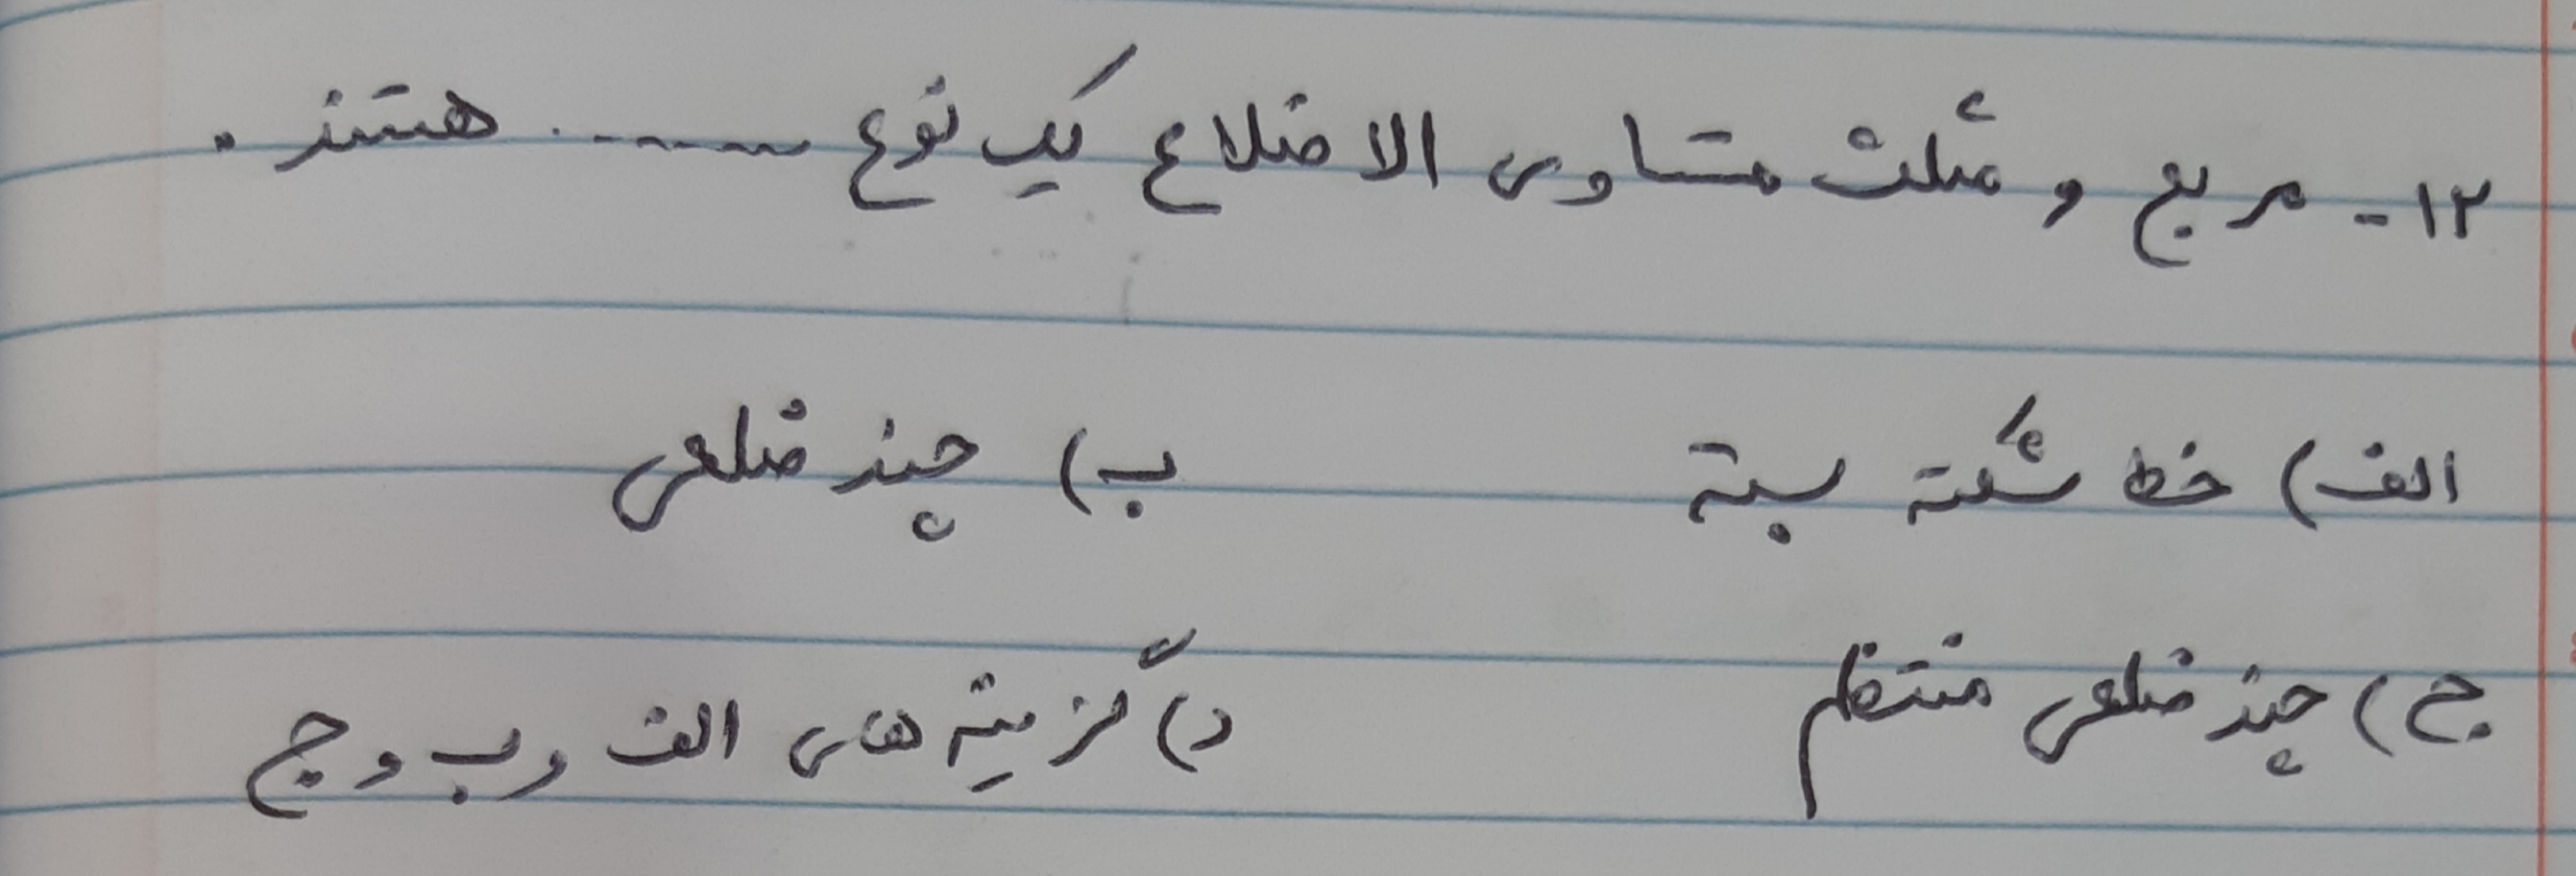 ۱۲- مربع و مثلث متساوی الاضلاع یک نوع ........ هستند .
الف) خط شکسته بسته ب) چند ضلعی
ج) چند ضلعی منتظم د) گزینه های الف و ب و ج